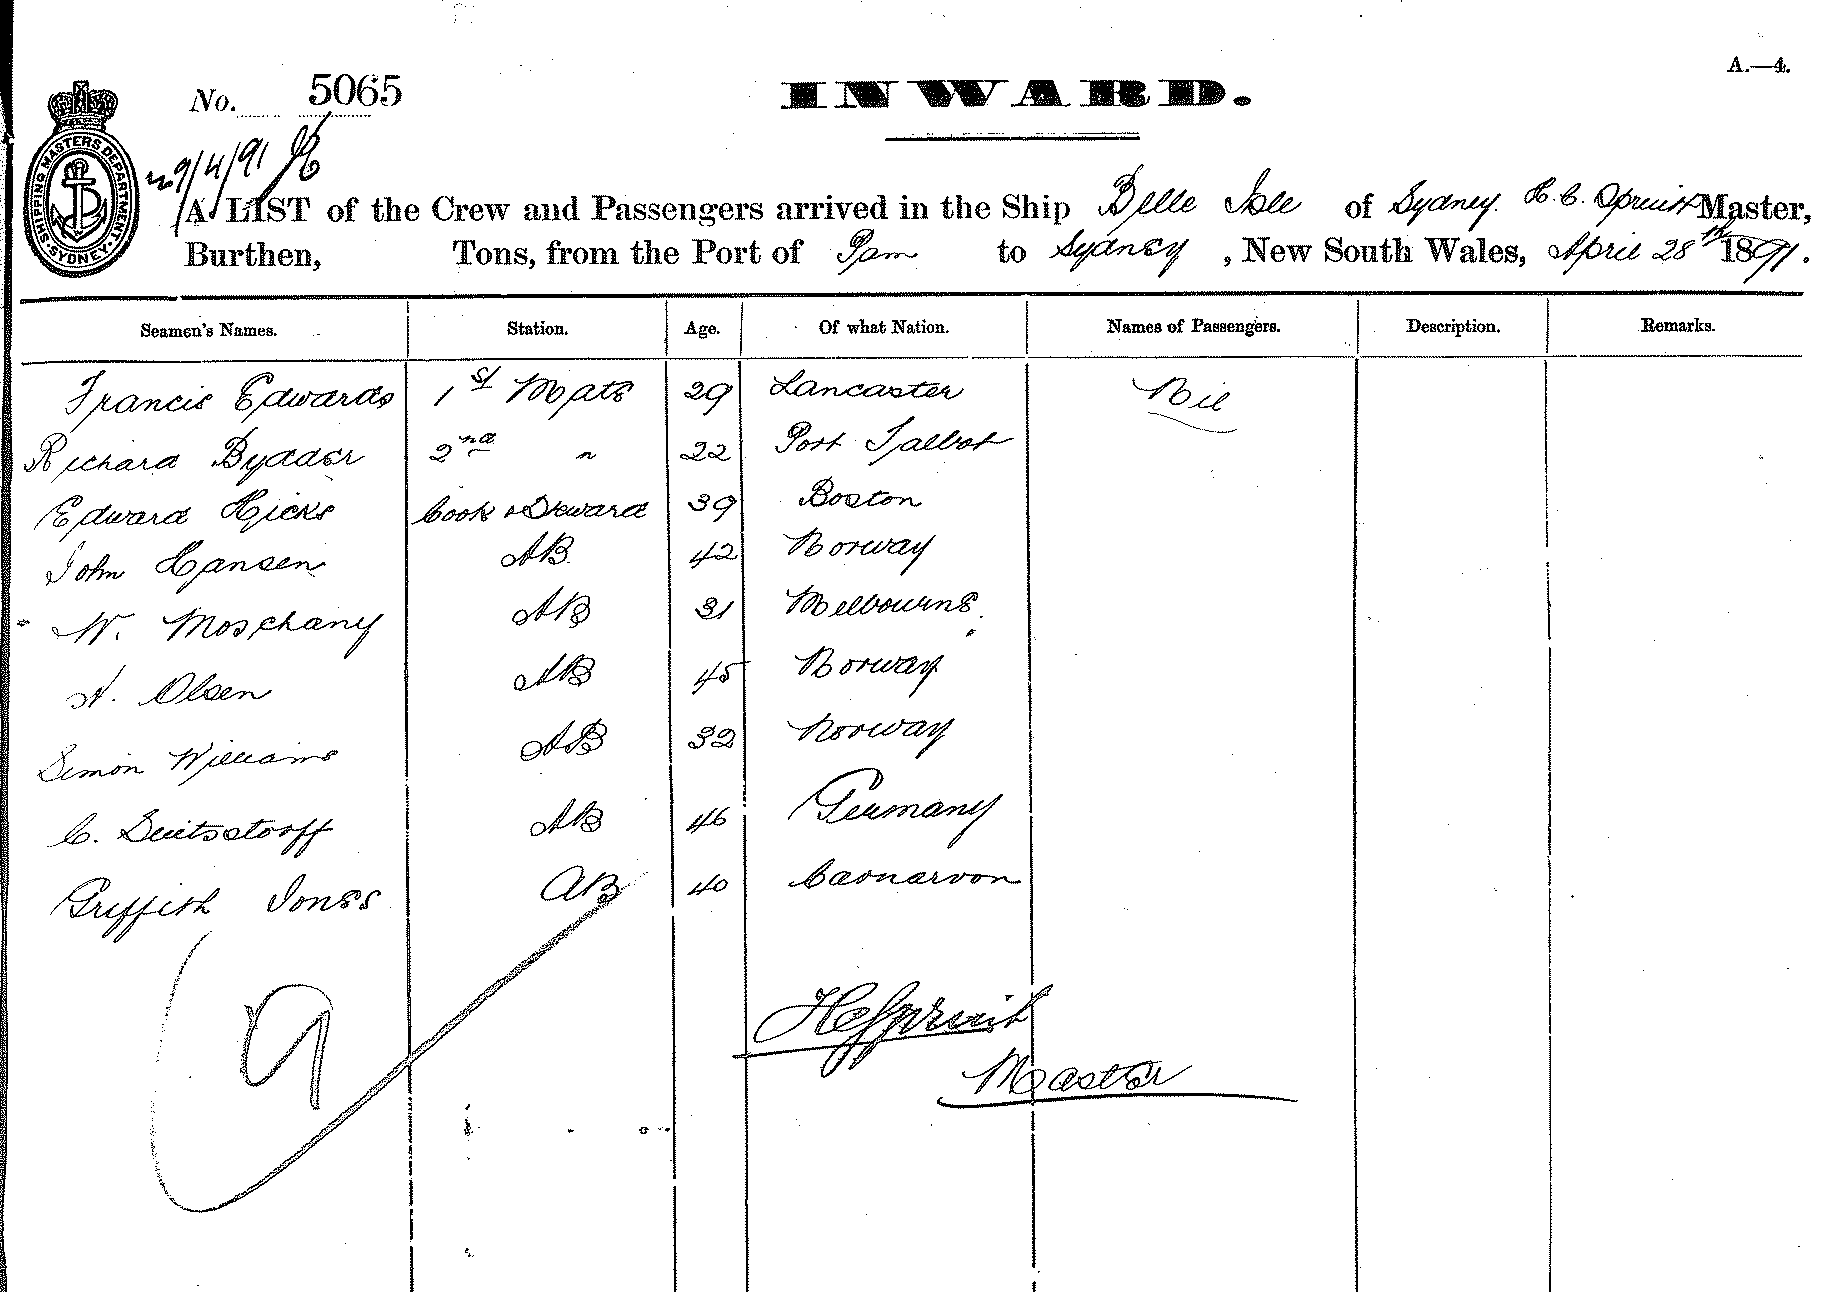 A.—4.
No. 5065
INWARD.
SHIPPING MASTERS DEPARTMENT SYDNEY
29/4/91
A LIST of the Crew and Passengers arrived in the Ship Belle Isle of Sydney. H. C. Spruit Master,
Burthen, Tons, from the Port of Pam to Sydney, New South Wales, April 28th 1891.
Seamen's Names. Station. Age. Of what Nation. Names of Passengers. Description. Remarks.
Francis Edwards 1st Mate 29 Lancaster Nil
Richard Bydder 2nd " 22 Port Talbot
Edward Hicks Cook & Steward 39 Boston
John Hansen AB. 42 Norway
W. Moschany AB 31 Melbourne.
A. Olsen AB 45 Norway
Simon Williams AB 32 Norway
C. AB 46 Germany
Griffith Jones AB 40 Carnarvon
9
HCSpruit
Master